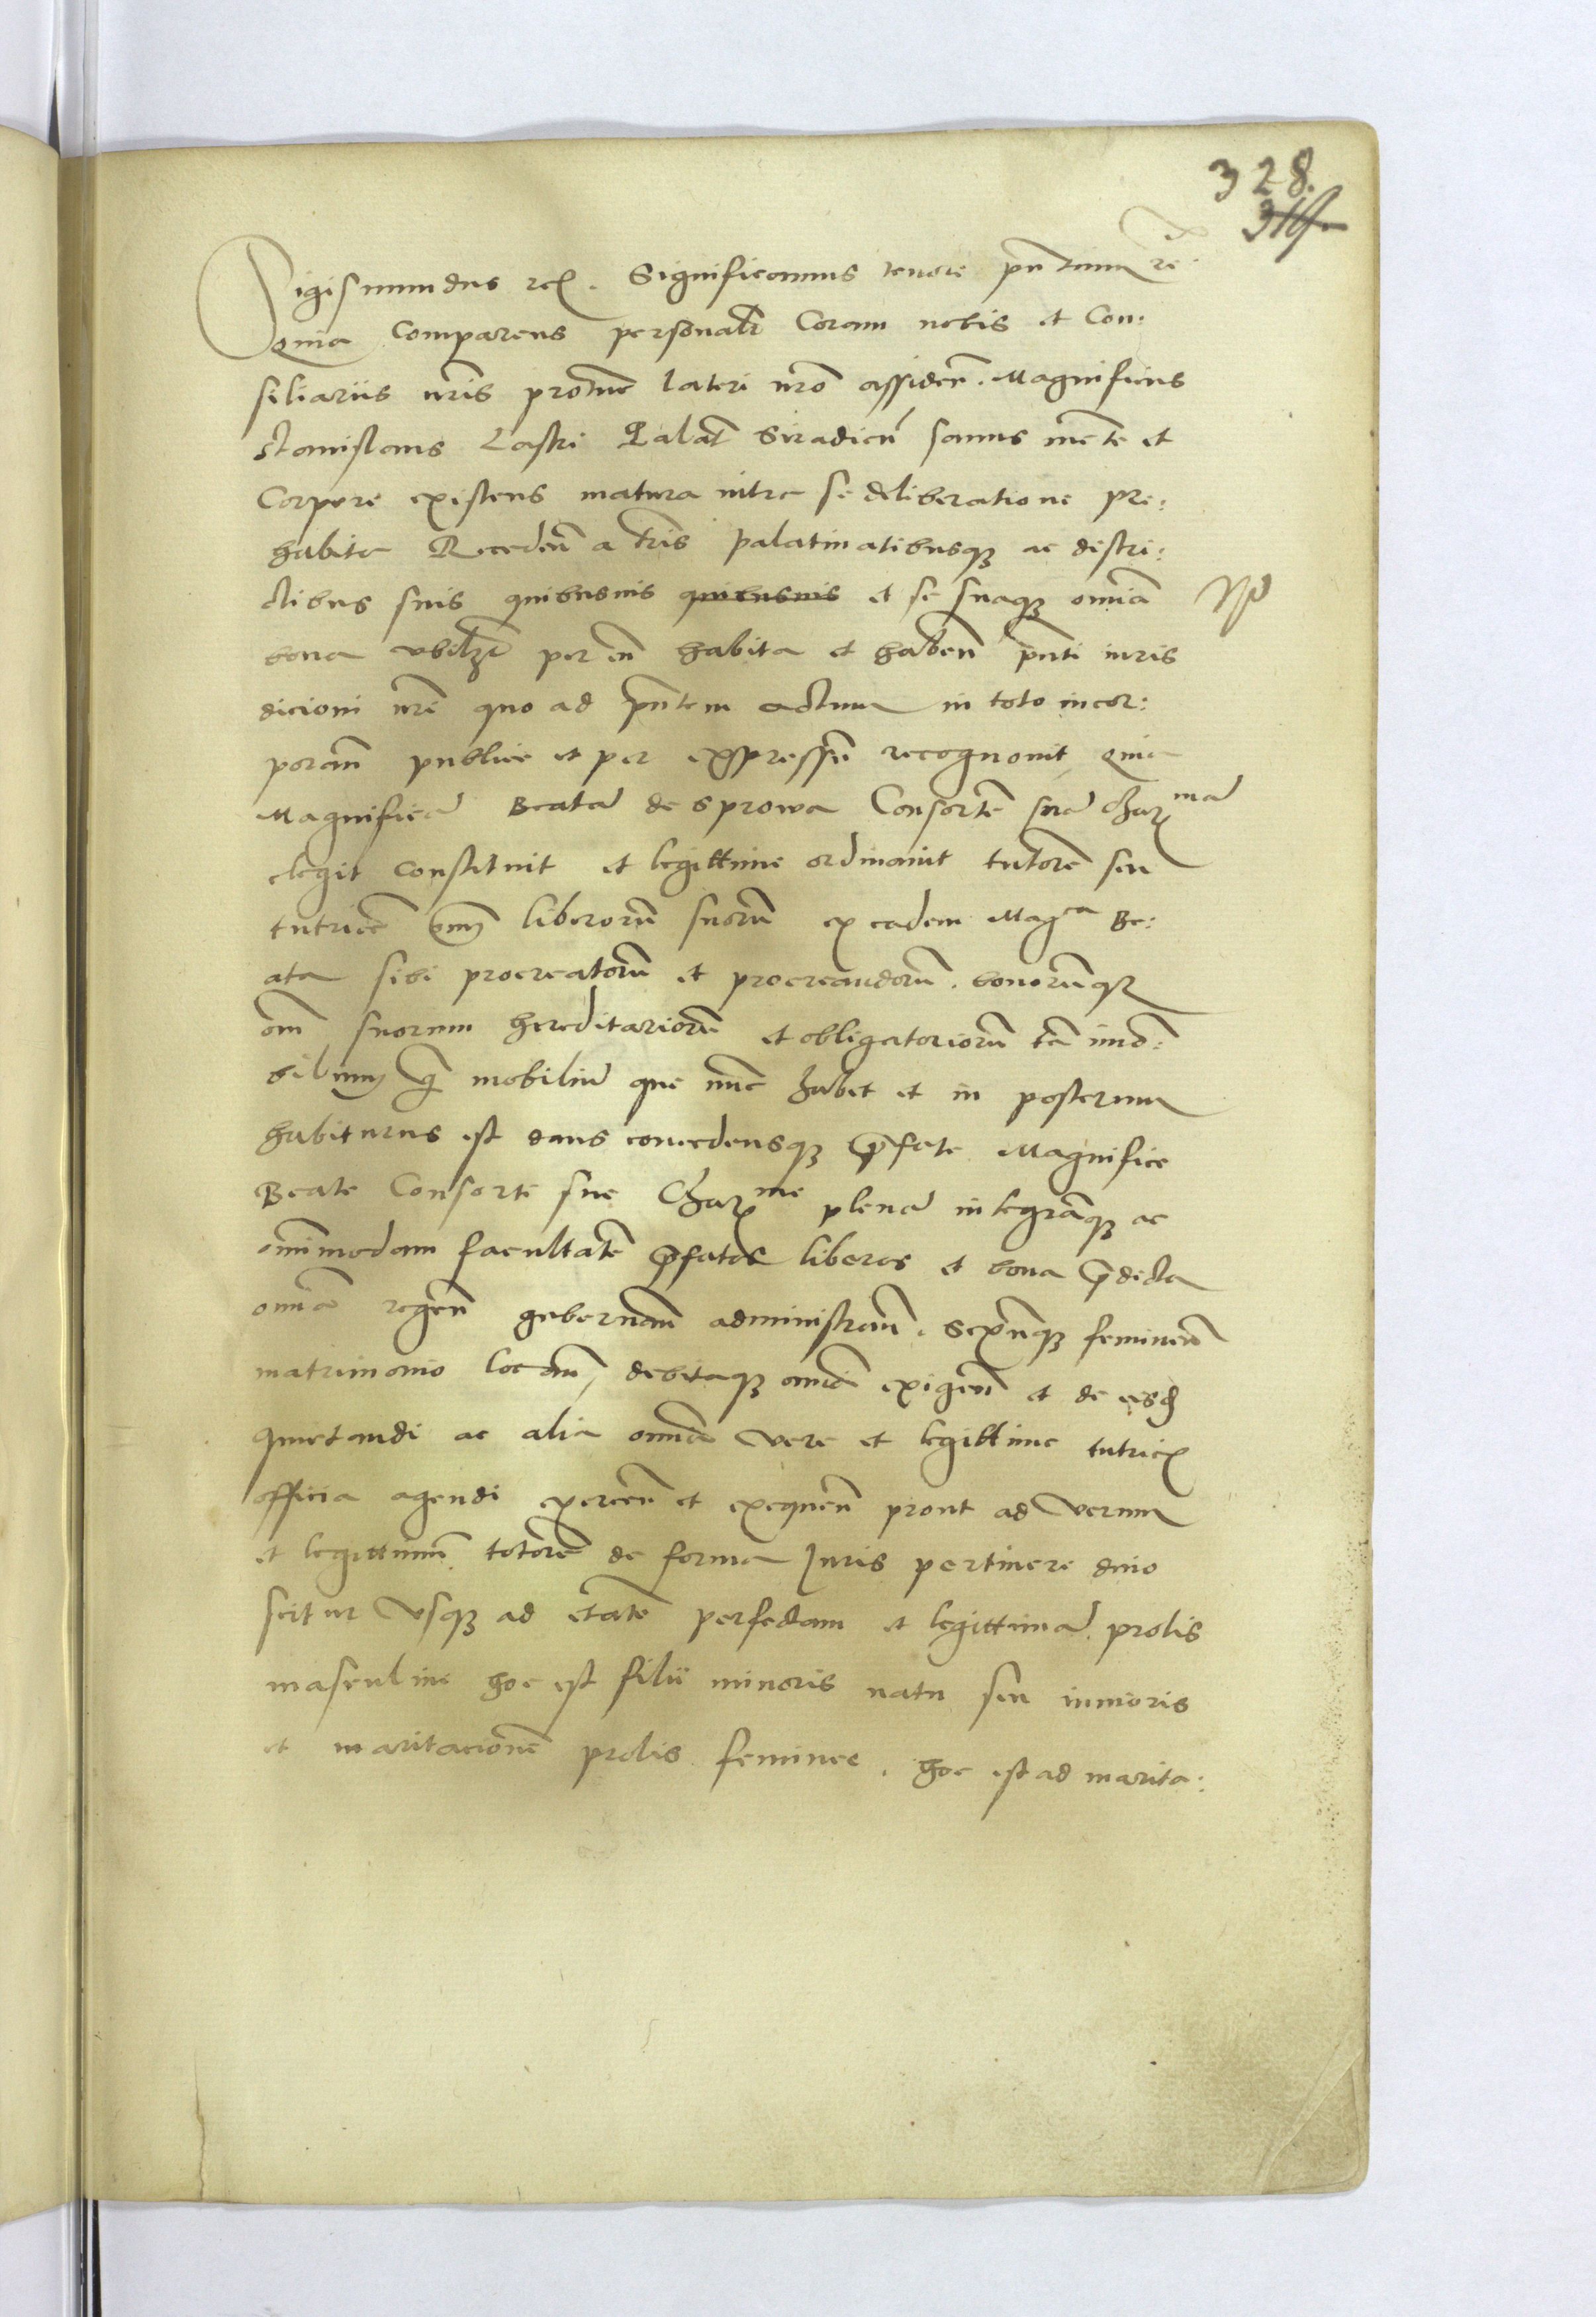 328.
Sigismundus rex. Significamus tenore pñtium etc.
Quia Comparens personalr̃ Coram nobis et Con:
siliariis nr̃is protunc lateri nr̃o assideñ. Magnificus
Stanislaus Lasski Palat̃ Siradieñ sanus mente et
Corpore existens matura intra se deliberatione pre:
habita Recedeñ a tr̃is palatinatibusq ac distri:
ctibus suis quibusuis quibusuis et se suaq om̃ia
bona vbilz̃ per eũ habita et habeñ pñti iuris
dicioni nr̃e quo ad pñtem actum in toto incor:
porañ publice et per expressũ recognouit Quia
Magnificã Beatã de Sprowa Consortẽ suã Charmã
elegit constituit et legittime ordinauit tutorẽ seu
tutricẽ om̃m liberorũ suorũ ex eadem Magca Be:
ata sibi procreatorũ et procreandorũ. bonorũq
om̃ suorum hereditariorũ et obligatoriorũ tã imo:
biliũ q̃ mobiliũ que nũc habet et in posterum
habiturus est dans concedensq p̃fate Magnifice
Beate Consorti sue Charme plenã integrãq ac
om̃imodam facultatẽ p̃fatos liberos et bona p̃dicta
omnia regeñ gubernañ administrañ. Sexũq femineũ
matrimonio locañ, debitaq om̃ia exigeñ et de eisd
quietandi ac alia om̃ia vere et legittime tutricis
officia agendi exerceñ et exequeñ prout ad verum
et legittimũ totorẽ de forma Juris pertinere dino
scitur vsq ad etatẽ perfectam et legittimã prolis
masculine hoc est filii minoris natu seu iunioris
et maritacionẽ prolis feminee. hoc est ad marita: